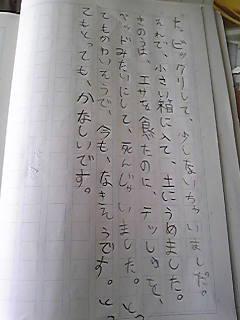 た。ビックリして、少しないちゃいました。
それで、小さい箱に入て、土にうめました。
きのうは、エサを食べたのに、テッしゅを、
ベッドみたいにして、死んじゃいました。とっ
てもかわいそうで、今も、なきそうです。とっ
てもとっても、かなしいです。